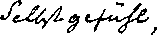 Selbstgefühl,